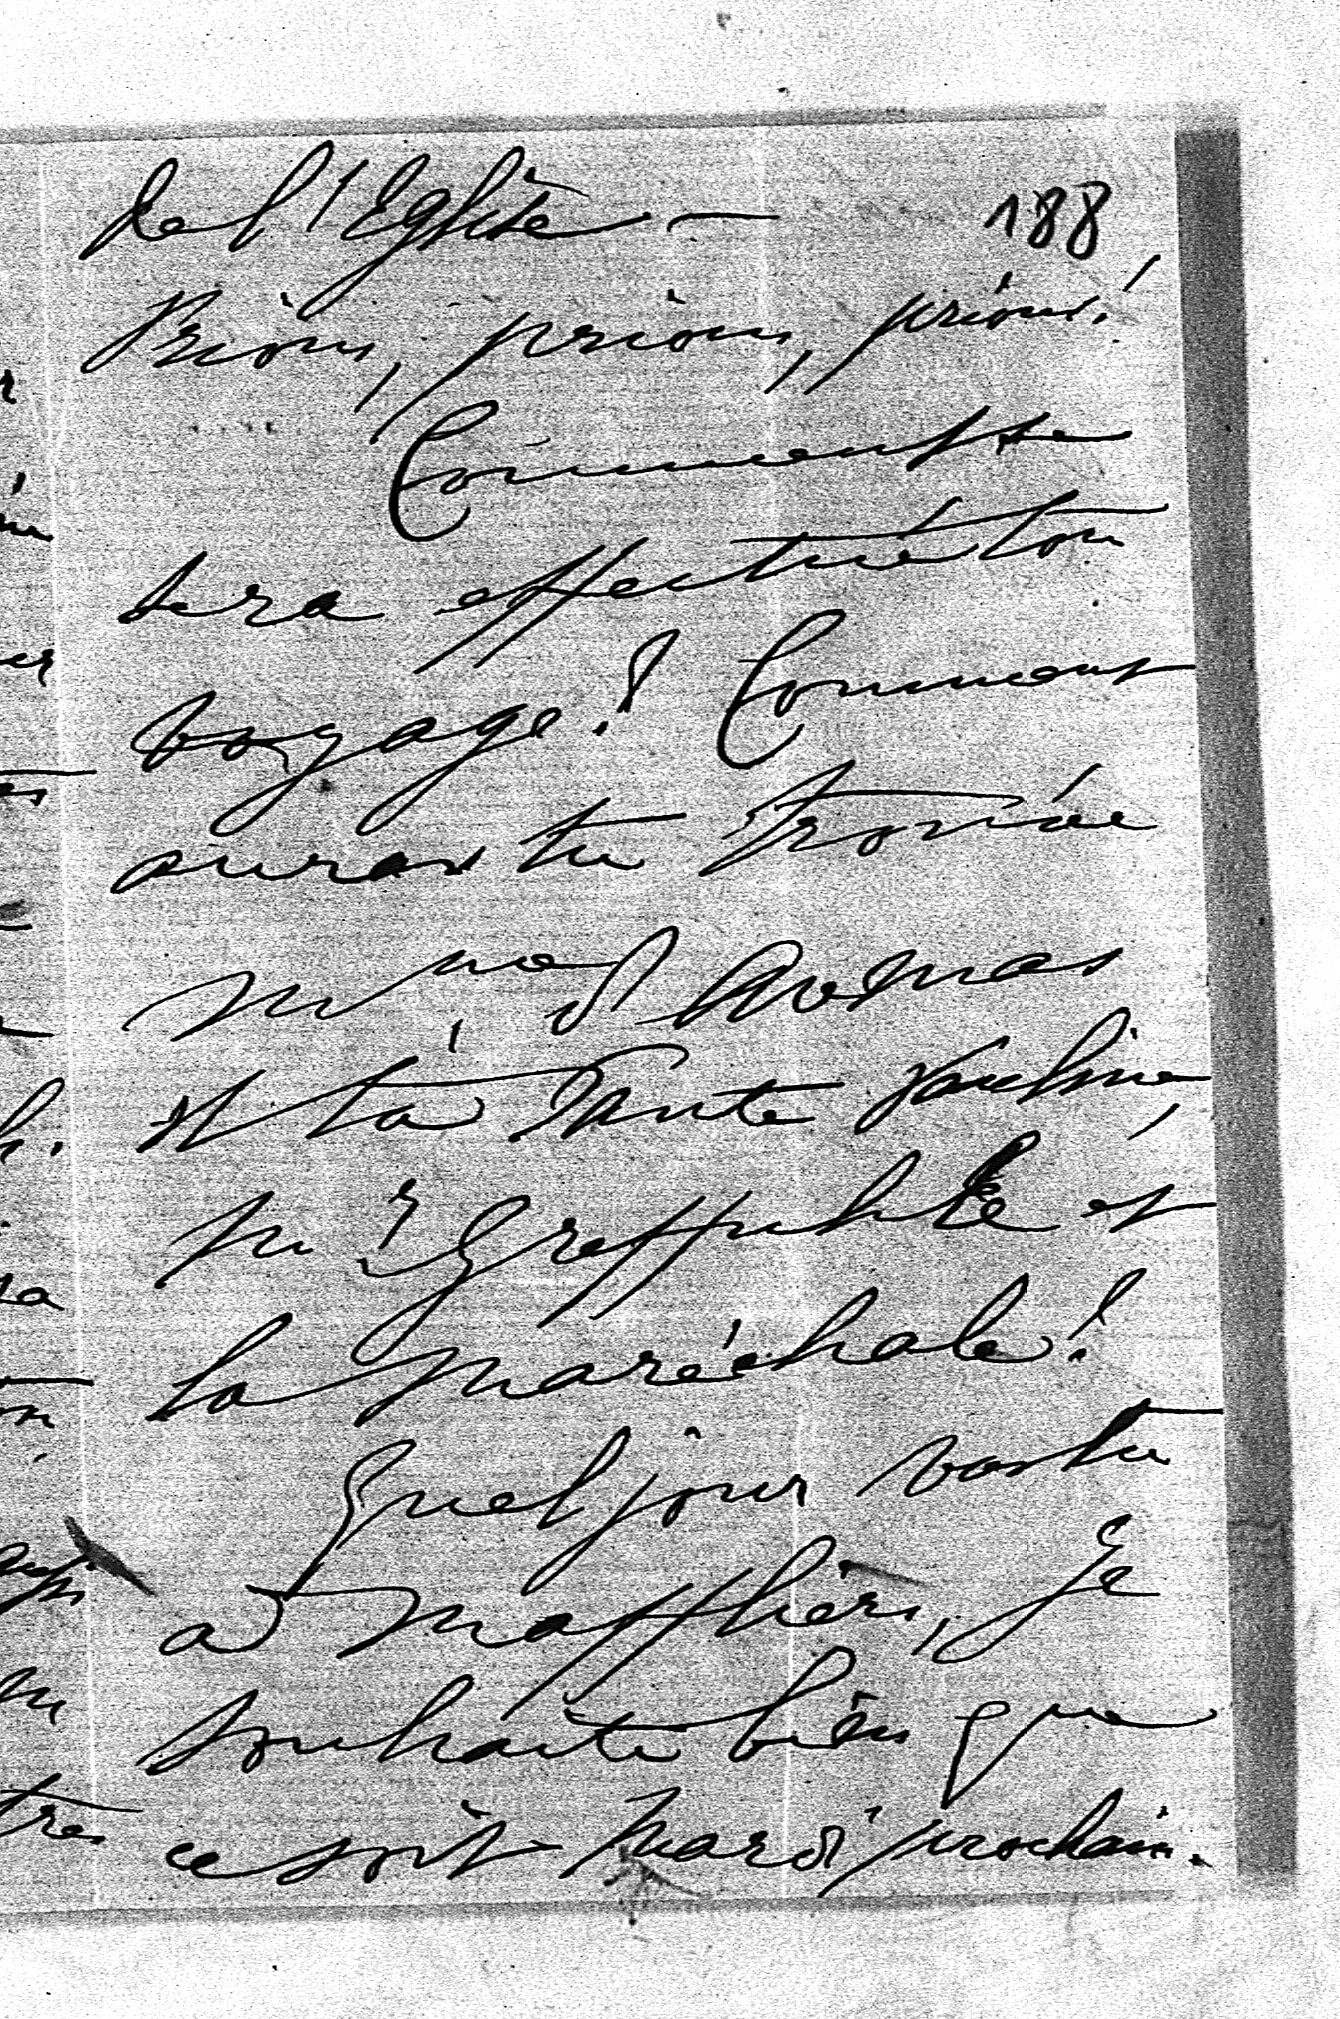 de l'Eglise —
188
Prions, prions, prions!
Comment se
sera effectué ton
voyage! Comment
auras tu trouvée
Mme d'Avernas
et ta Tante Pauline,
Mr Greffulhe et
la Maréchale!
Quel jour vas tu
à Maffliers, Je
souhaite bien que
ce soit Mardi prochain.